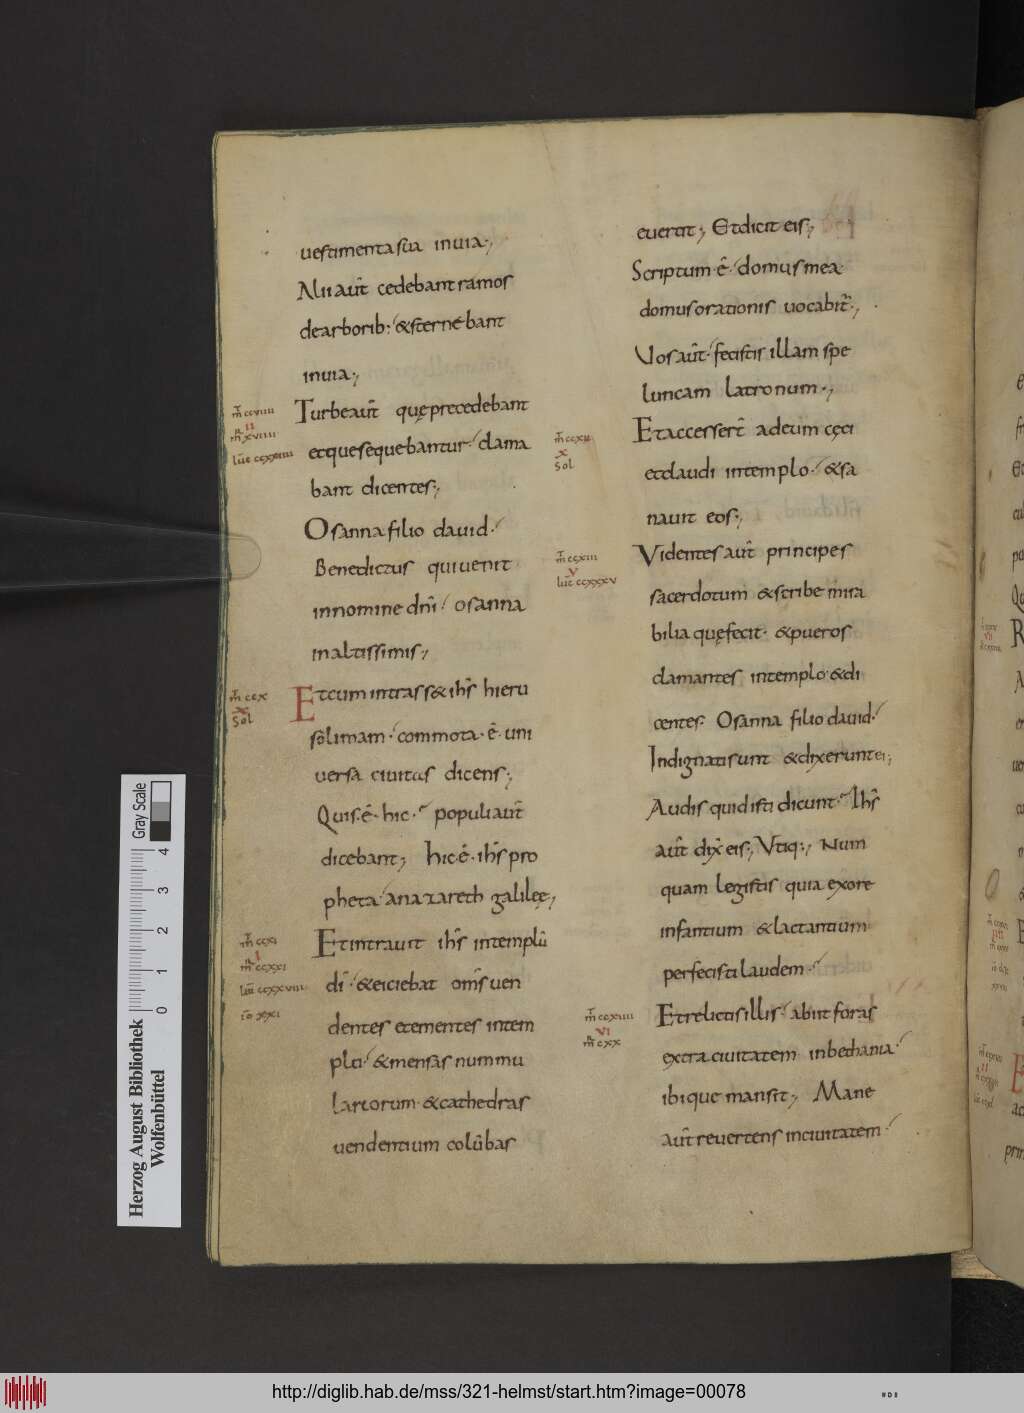 uestimenta sua in uia·,
Alii aut̄ cedebant ramos
de arborib: & sterne bant
in uia·,
m̄ ccviiii
ii
m̄ xviiii
Turbe aut̄ quę precedebant
et que sequebantur clama
bant dicentes·,
Osanna filio dauid·
Benedictus qui uenit
in nomine dnī osanna
in altissimis·,
m̄ ccx
x
Sol
Et cum intrass& ih̄s hieru
solimam· commota· ē· uni
uersa ciuitas dicens·,
Quis· ē· hic· populi aut̄
dicebant·, hic· ē· ih̄s pro
pheta· a nazareth galileę·,
m̄ ccxi
i
m̄ ccxxi
luc̄ ccxxxviii
io xxi
Et intrauit ih̄s in templū
dī· & eiciebat om̄s uen
dentes et ementes in tem
plo· & mensas nummu
lariorum· & cathedras
uendentium colūbas
euertit·, Et dicit eis·,
Scriptum ē· domus mea
domus orationis uocabit̄·,
Uos aut̄· fecistis illam spe
luncam latronum·,
m̄ ccxii
x
Sol
Et accessert̄ ad eum cęci
et claudi in templo· & sa
nauit eos·,
m̄ ccxiii
v
luc̄ ccxxxv
Videntes aut̄ principes
sacerdotum & scribe mira
bilia quę fecit· & pueros
clamantes in templo· & di
centes· Osanna filio dauid·
Indignati sunt & dixerunt ei·,
Audis quid isti dicunt· Ih̄s
aut̄ dix̄ eis·, Vtiq:·, Num
quam legistis quia ex ore
infantium & lactantium
perfecisti laudem·
m̄ ccxiiii
vi
m̄ cxx
Et relictis illis· abiit foras
extra ciuitatem in bethania·
ibique mansit·, Mane
aut̄ reuertens in ciuitatem·
Gray Scale
4
3
2
1
0
Herzog August Bibliothek
Wolfenbüttel
http://diglib.hab.de/mss/321-helmst/start.htm?image=00078